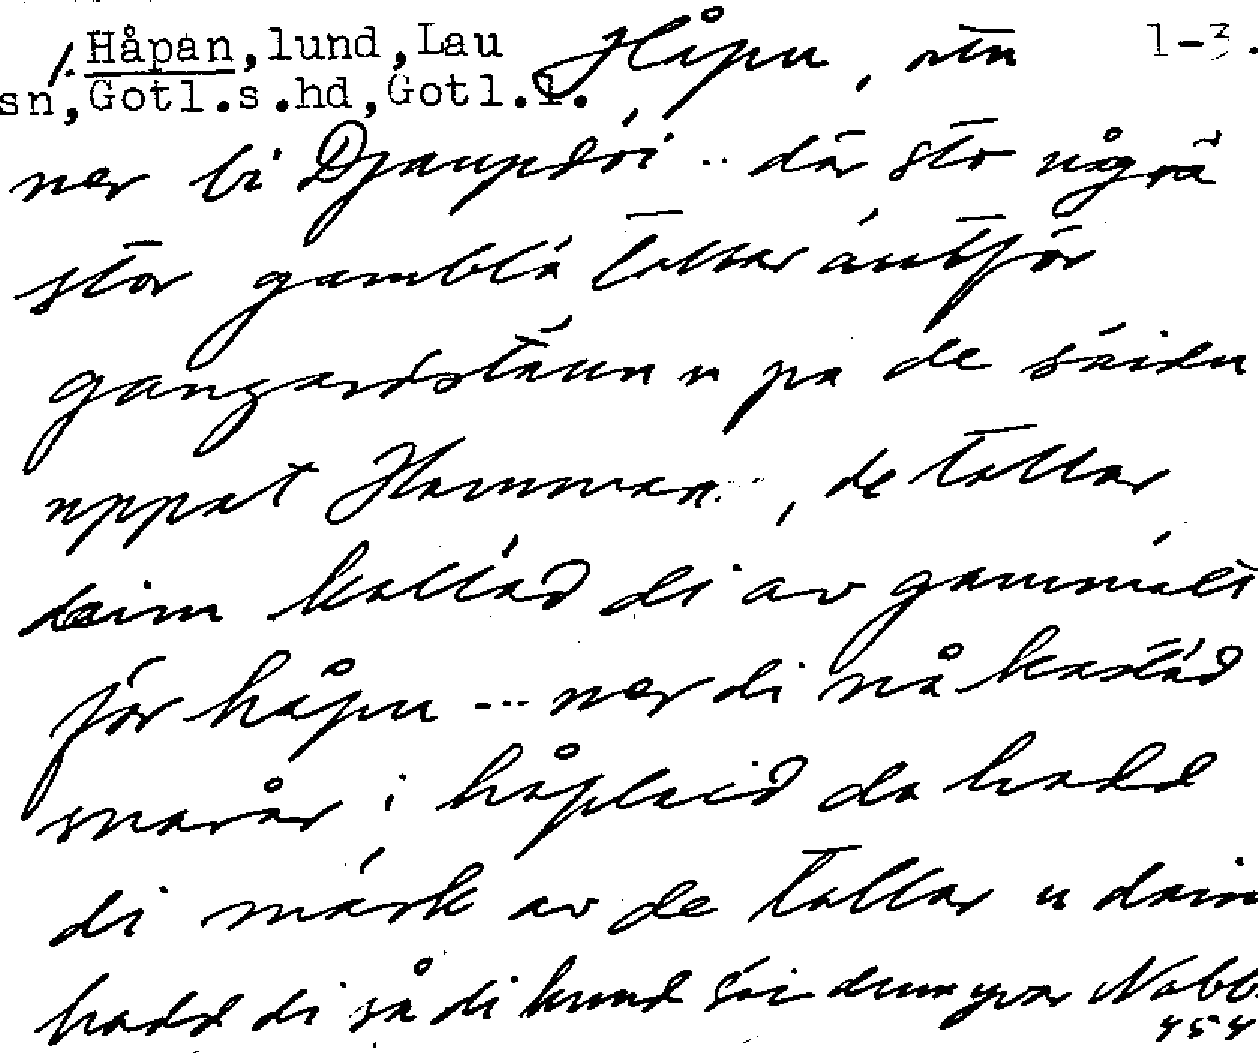 1. Håpan, lund, Lau Håpu, stn 1-3.
sn, Gotl.s.hd, Gotl.l.
ner bi Djaupdöi .. där sto någrä
stor gamblä tallar äutför
gangardstäun u pa de säidu
uppat Hamman.. , de tallar
daim kalläd di av gammält
för håpu ... ner di nå kastäd
snarår i håplaid da hadd
di märk av de tallar u daim
hadd di så di kund säi dum yvar Nabb
454